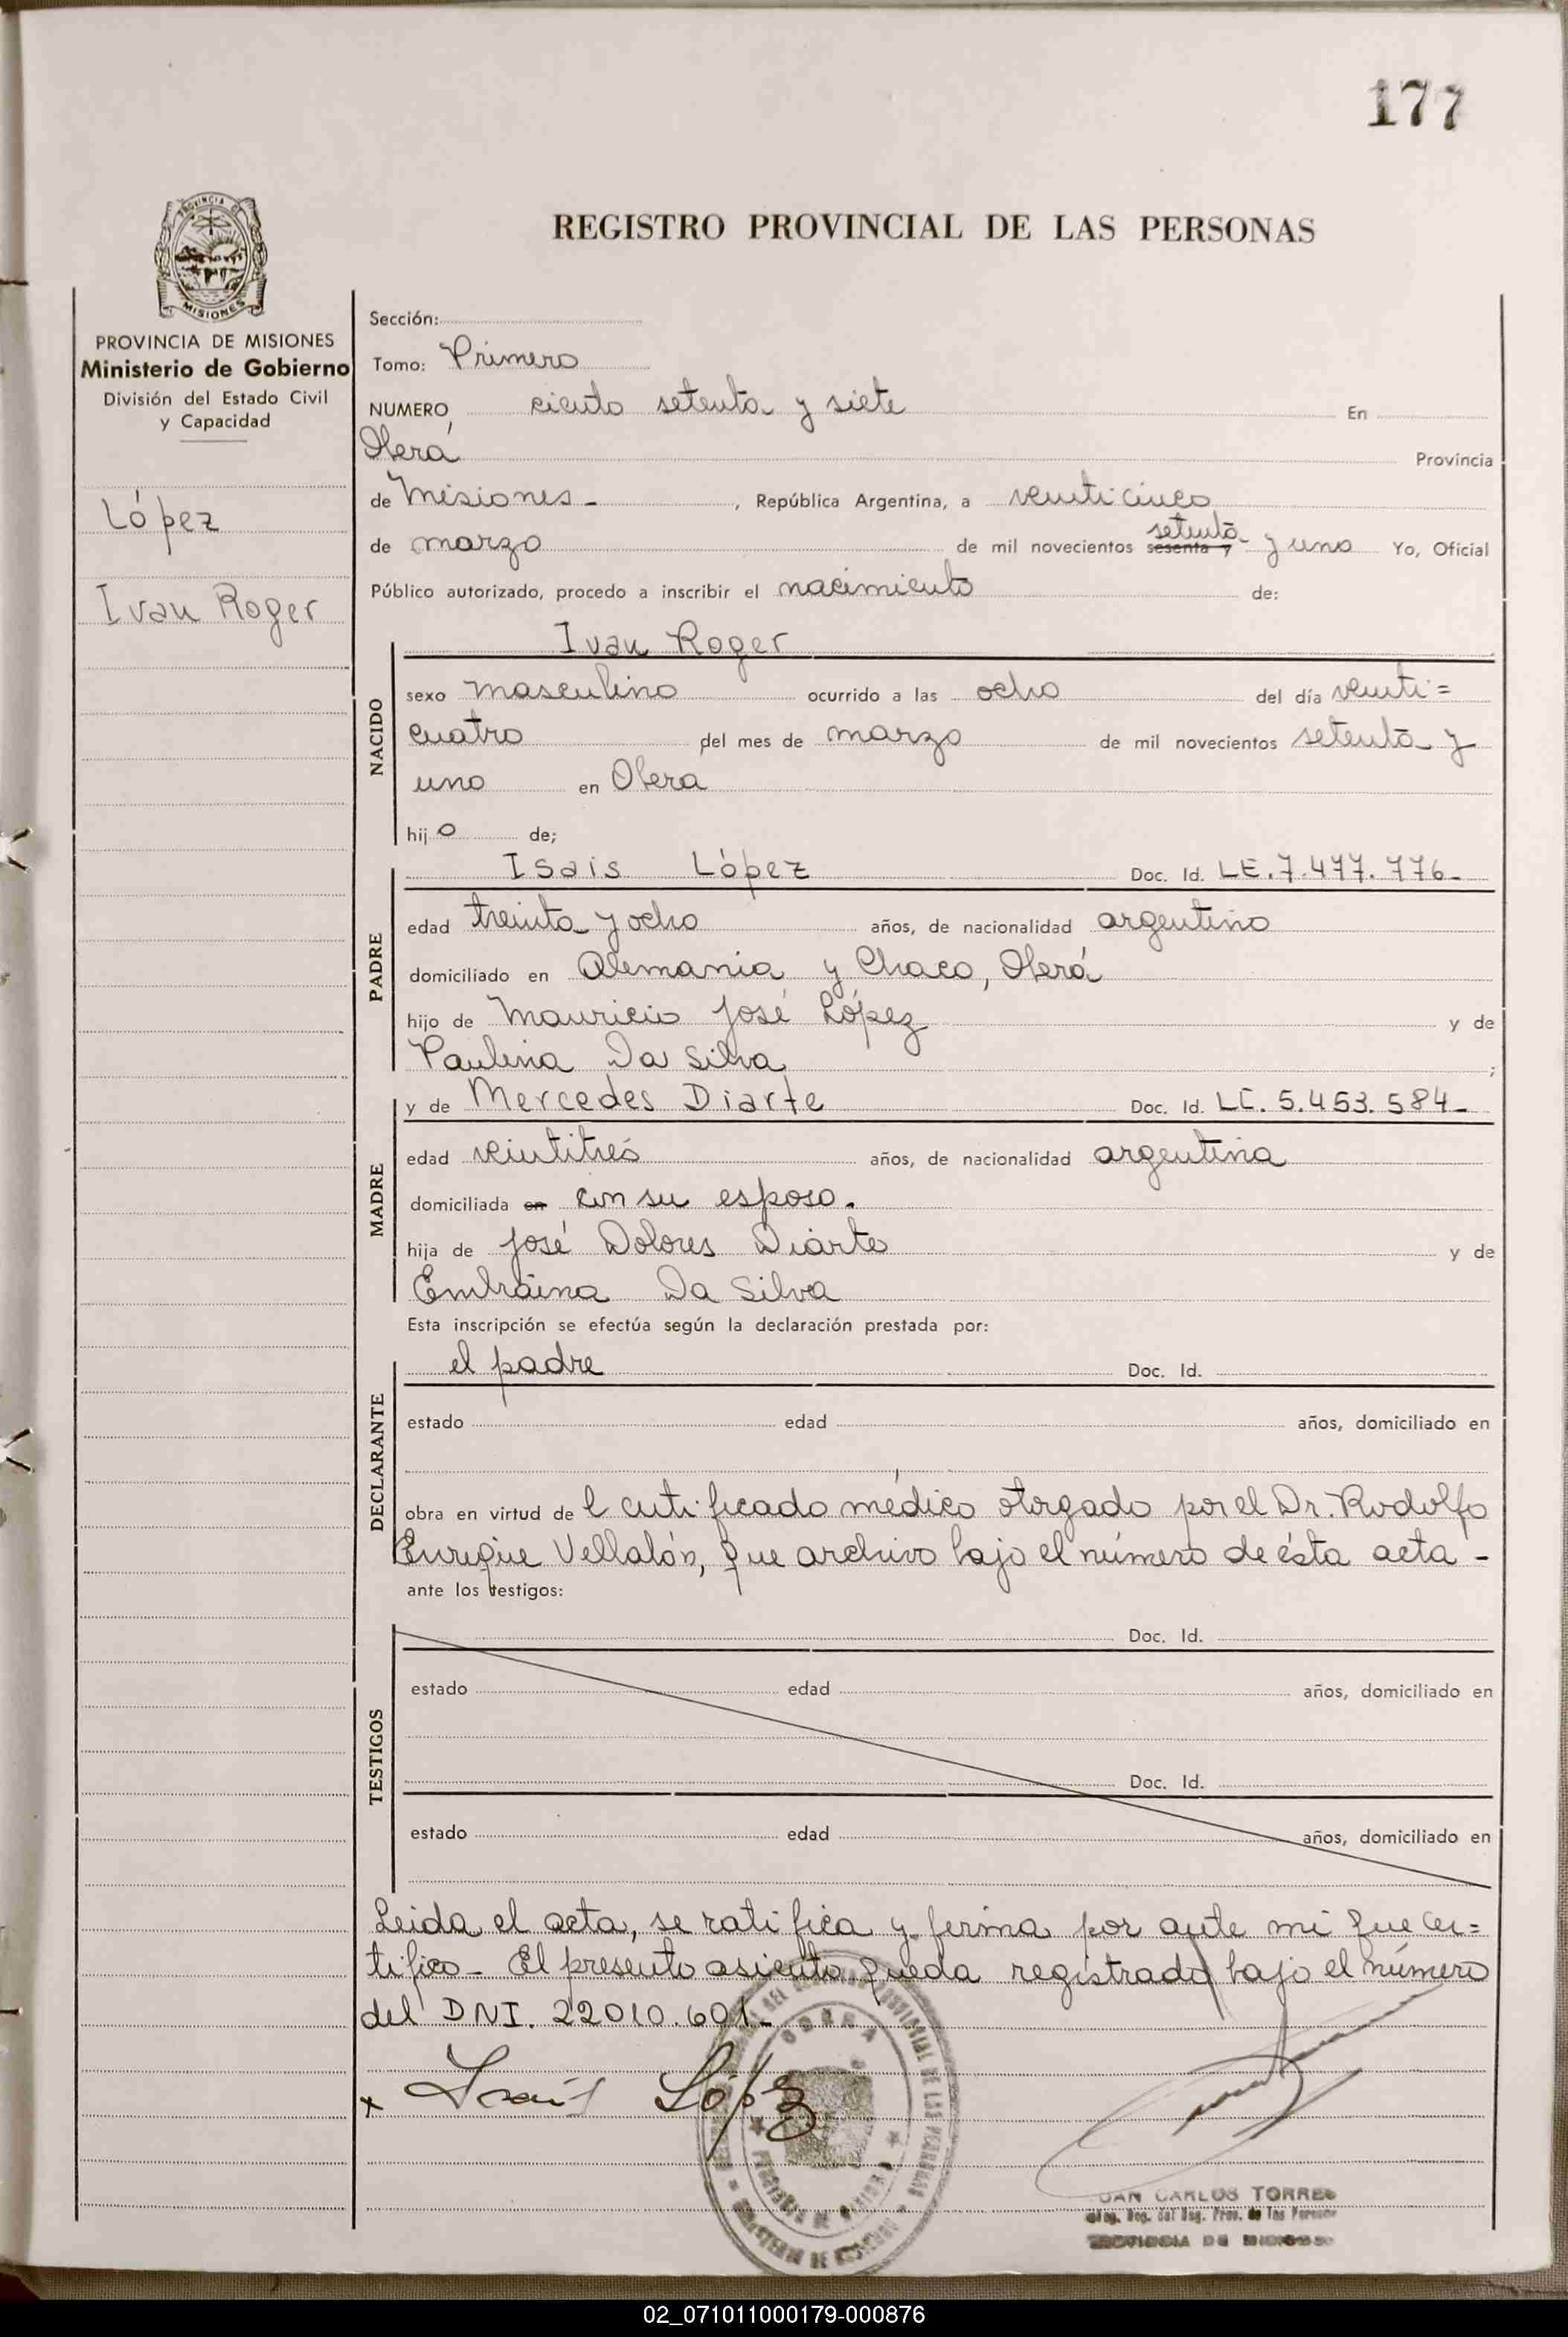 177
PROVINCIA DE
MISIONES
REGISTRO PROVINCIAL DE LAS PERSONAS
PROVINCIA DE MISIONES
Ministerio de Gobierno
División del Estado Civil
y Capacidad
López
Ivan Roger
Sección:
Tomo: Primero
NUMERO, ciento setenta y siete En
Oberá Provincia
de Misiones - , República Argentina, a veinticinco
setenta
de marzo de mil novecientos sesenta y y uno Yo, Oficial
Público autorizado, procedo a inscribir el nacimiento de:
Ivan Roger
NACIDO
sexo masculino ocurrido a las ocho del día veinti=
cuatro del mes de marzo de mil novecientos setenta y
uno en Obera
hijo de;
PADRE
Isais López Doc. Id. LE.7.477.776-
edad treinta y ocho años, de nacionalidad argentino
domiciliado en Alemania y Chaco, Oberá
hijo de Mauricio José López y de
Paulina Da Silva ;
MADRE
y de Mercedes Diarte Doc. Id. LC. 5.453.584-
edad veintitrés años, de nacionalidad argentina
domiciliada en con su esposo.
hija de José Dolores Diarte y de
Embraina Da Silva
Esta inscripción se efectúa según la declaración prestada por:
DECLARANTE
el padre Doc. Id.
estado edad años, domiciliado en
obra en virtud de l certificado médico otorgado por el Dr. Rodolfo
Enrique Vellalón, que archivo bajo el número de ésta acta -
ante los testigos:
TESTIGOS
Doc. Id.
estado edad años, domiciliado en
Doc. Id.
estado edad años, domiciliado en
Leida el acta, se ratifica y firma por ante mi que cer=
tifico- El presente asiento queda registrado bajo el número
del DNI. 22010.601-
x Isais López
OBERA
JUAN CARLOS TORRES
Reg. Prov. de las Personas
PROVINCIA DE MISIONES
02_071011000179-000876